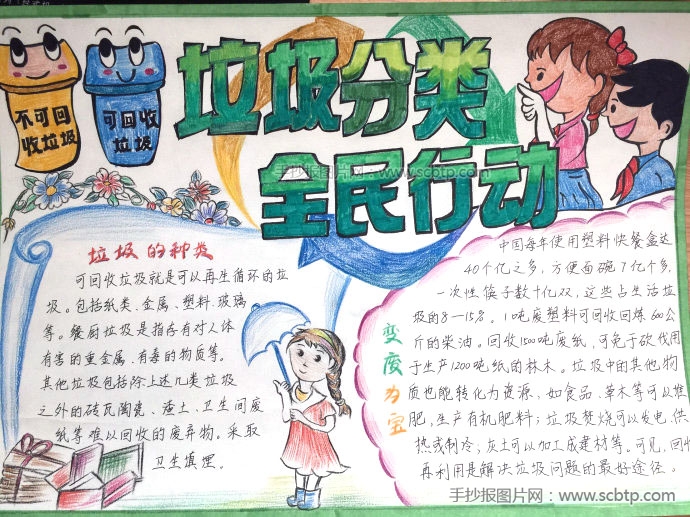 不可回
收垃圾
可回收
垃圾
垃圾分类
全民行动
手抄报图片网：www.scbtp.com
垃圾的种类
可回收垃圾就是可以再生循环的垃
圾。包括纸类、金属、塑料、玻璃
等。餐厨垃圾是指存有对人体
有害的重金属、有毒的物质等。
其他垃圾包括除上述几类垃圾
之外的砖瓦陶瓷、渣土、卫生间废
纸等难以回收的废弃物。采取
卫生填埋。
变废为宝
中国每年使用塑料快餐盒达
40个亿之多，方便面碗7亿个多，
一次性筷子数十亿双，这些占生活垃
圾的8—15%。1吨废塑料可回收回炼600公
斤的柴油。回收1500吨废纸，可免于砍伐用
于生产1200吨纸的林木。垃圾中的其他物
质也能转化为资源，如食品、草木等可以堆
肥，生产有机肥料；垃圾焚烧可以发电、供
热或制冷；灰土可以加工成建材等。可见，回收
再利用是解决垃圾问题的最好途径。
手抄报图片网：www.scbtp.com